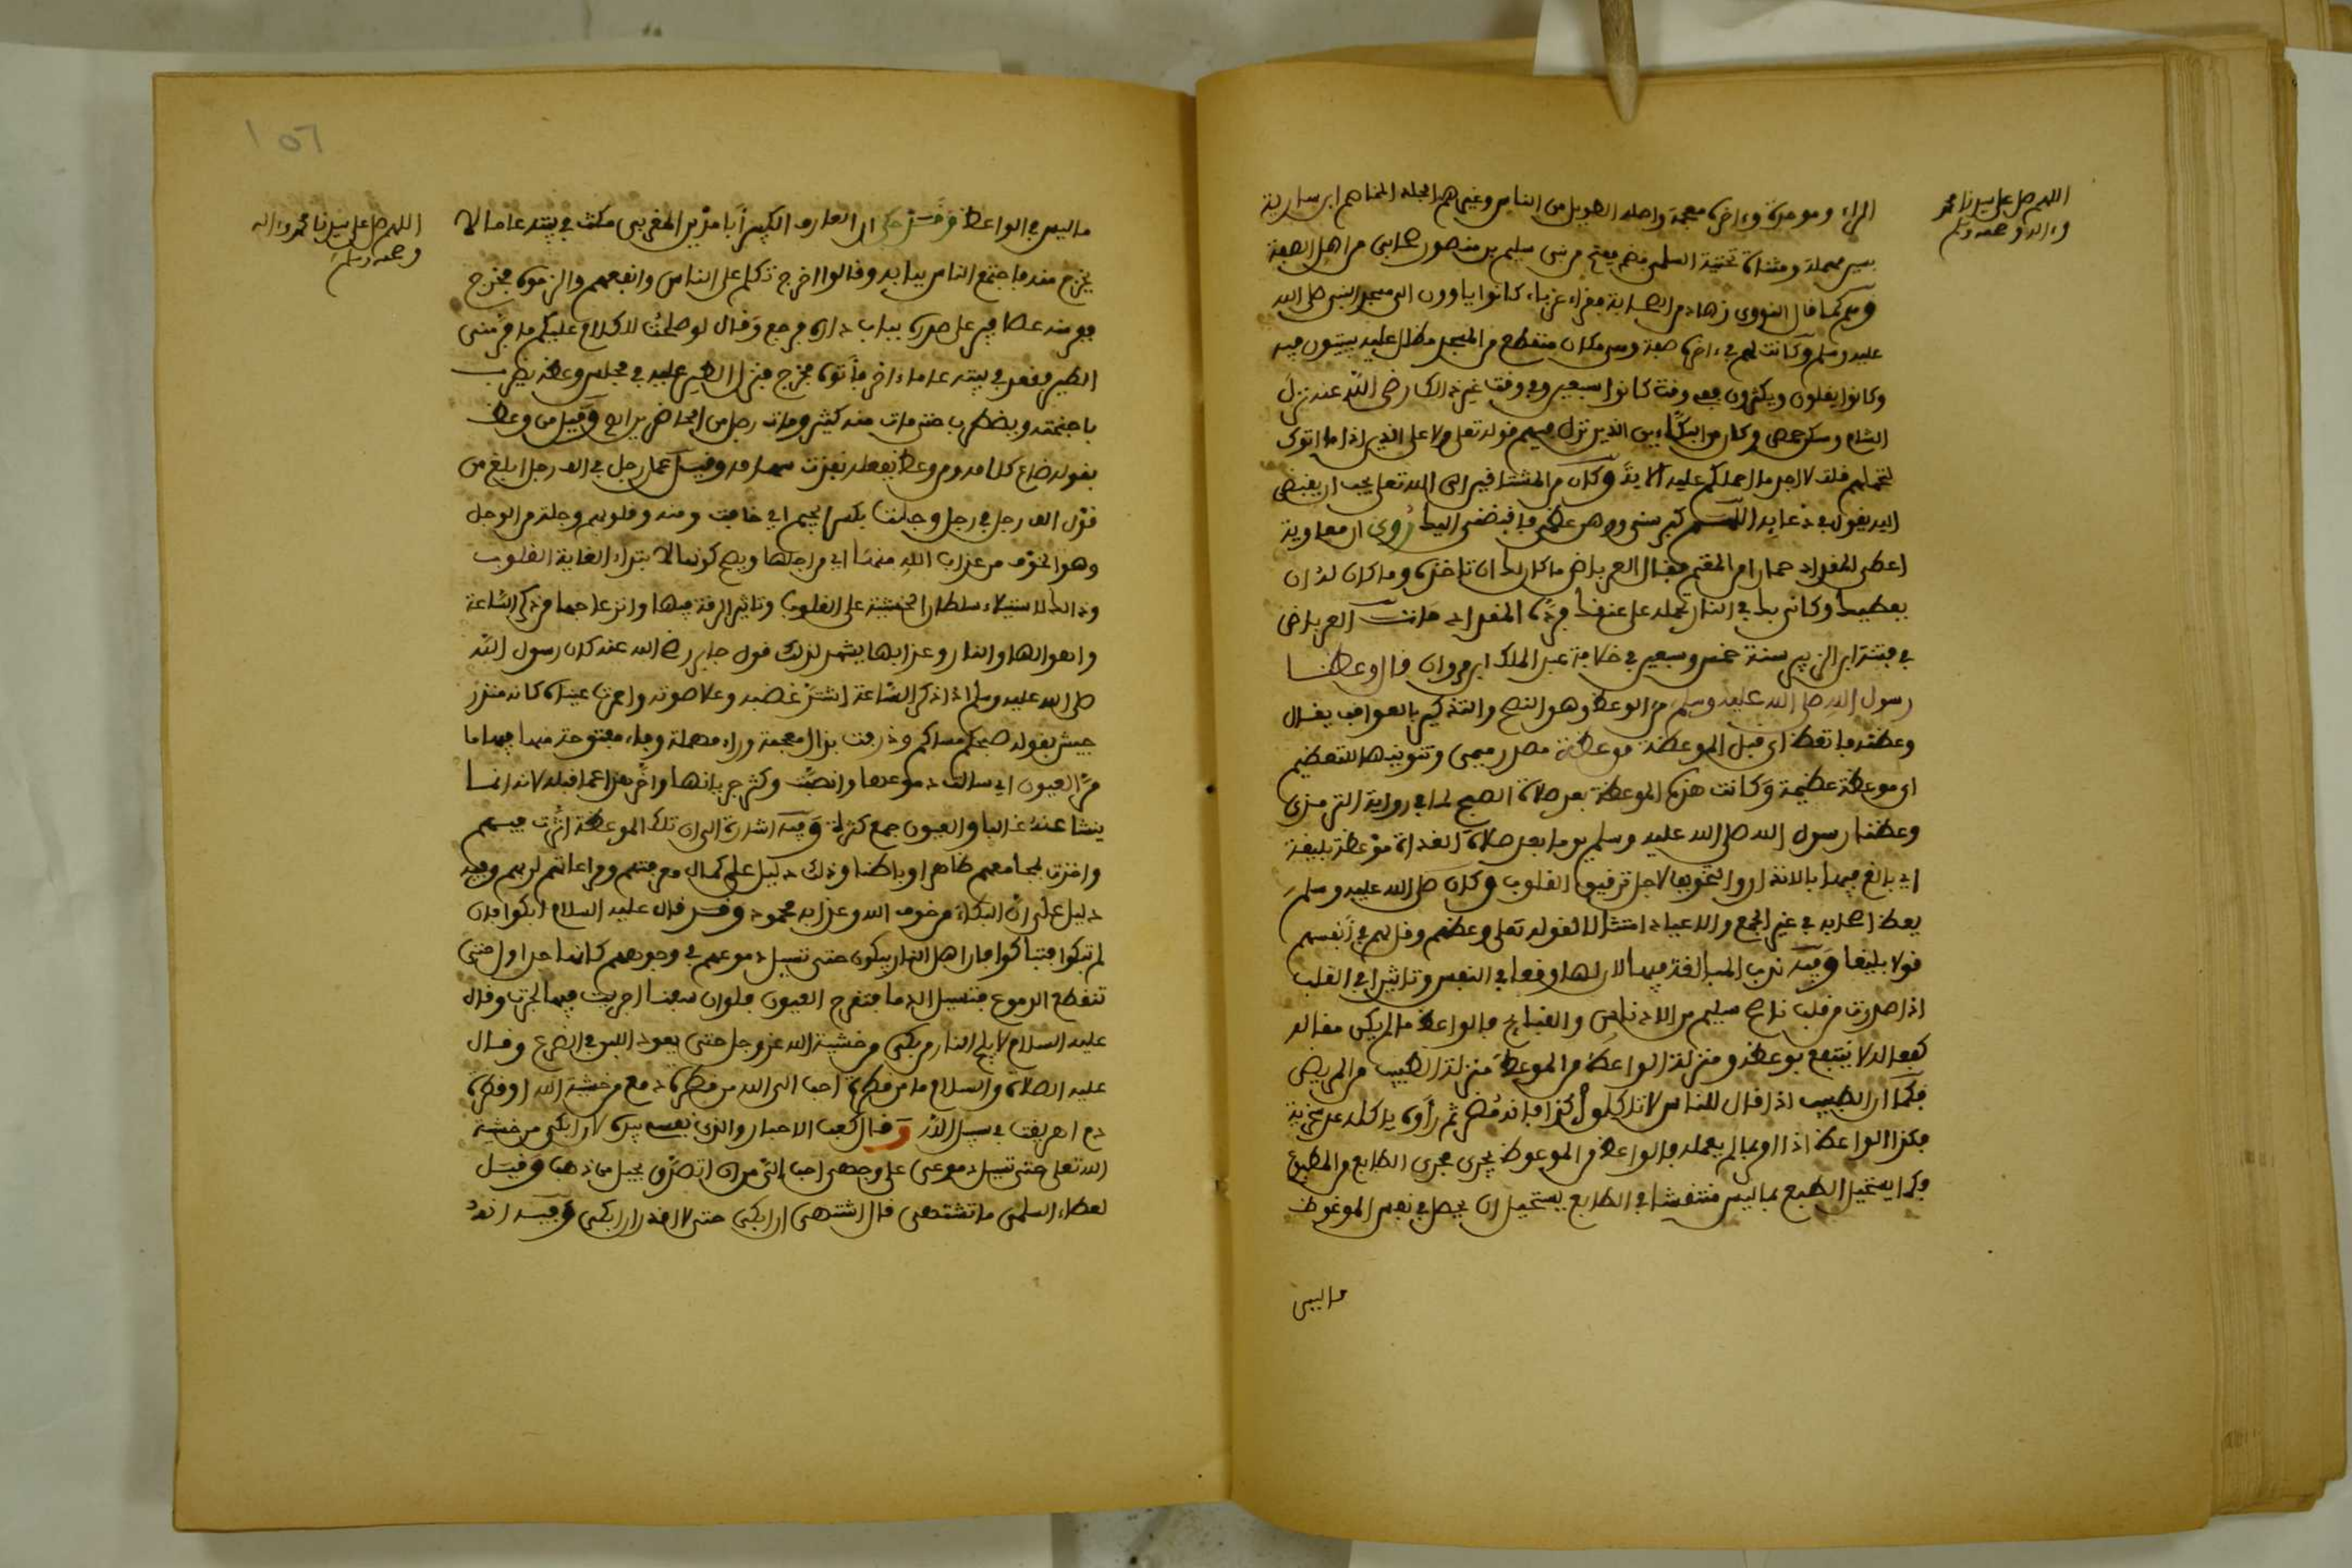 اللهم صل على سيدنا محمد
وءاله وصحبه وسلم
الراء وموحدة وءاخره معجمة واصله الطويل من الناس وغيرهم الجلد المخاصم ابن سارية
بسين مهملة ومثناة تحتية السلمي بضم ففتح من بني سليم بن منصور صحابي من اهل الصفة
وهم كما قال النووي زهاد من الصحابة فقراء غرباء كانوا ياوون الى مسجد النبي صلى الله
عليه وسلم وكانت لهم في ءاخره صفة وهي مكان منقطع من المسجد مظلل عليه يبيتون فيه
وكانوا يقلون ويكثرون ففي وقت كانوا سبعين وفي وقت غير ذالك رضي الله عنه نزل
الشام وسكن حمص وكان من البكائين الذين نزل فيهم قوله تعلى ولا على الذين اذا ما اتوك
لتحملهم قلت لا اجد ما احملكم عليه الاية وكان من المشتاقين الى الله تعلى يحب ان يقبض
اليه يقول في دعائه اللهم كبر سني ووهن عظمي فاقبضني اليك روي ان معاوية
اعطى المقداد حمارا من المقسم فقال العرباض ما كان لك ان تاخذه وما كان له ان
يعطيك وكاني بك في النار تحمله على عنقك فرده المقداد مات العرباض
في فتنة ابن الزبير سنة خمس وسبعين في خلافة عبد الملك ابن مروان قال وعظنا
رسول الله صلى الله عليه وسلم من الوعظ وهو النصح والتذكير بالعواقب يقال
وعظته فاتعظ اي قبل الموعظة موعظة مصدر ميمي وتنوينها للتعظيم
اي موعظة عظيمة وكانت هذه الموعظة بعد صلاة الصبح لما في رواية الترمذي
وعظنا رسول الله صلى الله عليه وسلم يوما بعد صلاة الغداة موعظة بليغة
اي بالغ فيها بالانذار والتخويف لاجل ترقيق القلوب وكان صلى الله عليه وسلم
يعظ اصحابه في غير الجمع والاعياد امتثالا لقوله تعلى وعظهم وقل لهم في أنفسهم
قولا بليغا وفيه ندب المبالغة فيها لان لها وقعا في النفس وتاثيرا في القلب
اذا صدرت من قلب ناصح سليم من الادناس والقبائح فالواعظ ما لم يكن مقاله
كفعاله لا ينتفع بوعظه ومنزلة الواعظ من الموعظ منزلة الطبيب من المريض
فكما ان الطبيب اذا قال للناس لا تاكلوا كذا فانه مضر ثم رأوه ياكله عد سخرية
فكذا الواعظ اذا امر بما لم يعمله فالواعظ من الموعوظ يجري مجرى الطابع من المطبوع
فكما يستحيل الطبع بما ليس منتقشا في الطابع يستحيل ان يحصل في نفس الموعوظ
ما ليس
١٥٦
اللهم صل على سيدنا محمد وءاله
وصحبه وسلم
ما ليس في الواعظ وقد حكي ان العارف الكبير أبا مدين المغربي مكث في بيته عاما لا
يخرج منه فاجتمع الناس ببابه وقالوا اخرج تكلم على الناس وانفعهم والزموه فخرج
ففر منه عصافير على سدرة بباب داره فرجع وقال لو صلحت للكلام عليكم ما فر مني
الطير فقعد في بيته عاما ءاخر فأتوه فخرج فنزل الطير عليه في مجلس وعظه يضرب
باجنحته ويضطرب حتى مات منه كثير ومات رجل من الحاضرين اه وقيل من وعظ
بقوله ضاع كلامه ومن وعظ بفعله نفذت سهامه وقيل عمل رجل في الف رجل ابلغ من
قول الف رجل في رجل وجلت بكسر الجيم اي خافت ومنه وقلوبهم وجلة من الوجل
وهو الخوف من عذاب الله منها اي من اجلها ويصح كونها لابتداء الغاية القلوب
وذالك لاستيلاء سلطان الخشية على القلوب وتاثير الرقة فيها وانزعاجها من ذكر الساعة
واهوالها والنار وعذابها يشهد لذلك قول جابر رضي الله عنه كان رسول الله
صلى الله عليه وسلم اذا ذكر الساعة اشتد غضبه وعلا صوته واحمرت عيناه كانه منذر
جيش يقول صبحكم مساكم وذرفت بذال معجمة وراء مهملة وفاء مفتوحة منها فيها ما
مر العيون اي سالت دموعها وانصبت وكثر جريانها واخر هذا عما قبله لانه انما
ينشا عنه غالبا والعيون جمع كثرة وفيه اشارة الى ان تلك الموعظة اثرت فيهم
واخذت بمجامعهم ظاهرا وباطنا وذلك دليل على كمال معرفتهم ومراعاتهم لربهم وفيه
دليل على أن البكاء من خوف الله وعذابه محمود وقد قال عليه السلام ابكوا فان
لم تبكوا فتباكوا فان اهل النار يبكون حتى تسيل دموعهم في وجوههم كانها جداول حتى
تنقطع الدموع فتسيل الدما فتقرح العيون فلو ان سفنا اجريت فيها لجرت وقال
عليه السلام لا يلج النار من بكى من خشية الله عز وجل حتى يعود اللبن في الضرع وقال
عليه الصلاة والسلام ما من قطرة احب الى الله من قطرة دمع من خشية الله او قطرة
دم اهريقت في سبيل الله وقال كعب الاحبار والذي نفسه بيده لان ابكي من خشية
الله تعلى حتى تسيل دموعي على وجهي احب الي من ان اتصدق بجبل من ذهب وقيل
لعطاء السلمي ما تشتهي قال اشتهي ان ابكي حتى لا اقدر ان ابكي وفيه انه